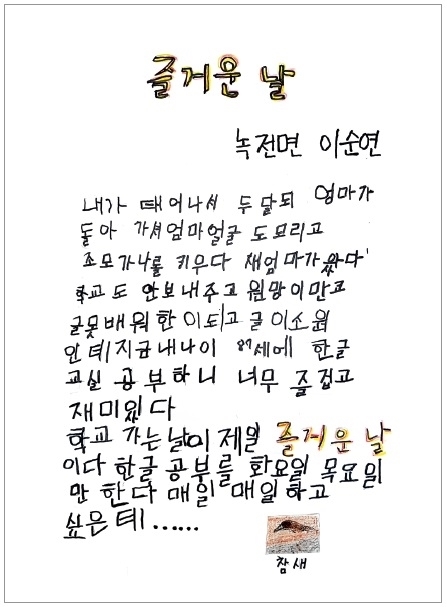 즐거운 날
녹전면 이순연
내가 태어나서 두달되 엄마가
돌아 가셔엄마얼굴 도모리고
조모가나를 키우다 새엄마가왔다
학교도 안보내주고 원망이만고
글못배워한이되고 글이소원
인테지금내나이 87세에 한글
교실 공부하니 너무 즐겁고
재미있다
학교 가는날이 제일 즐거운 날
이다 한글공부를 화요일 목요일
만 한다 매일 매일하고
싶은테......
참새